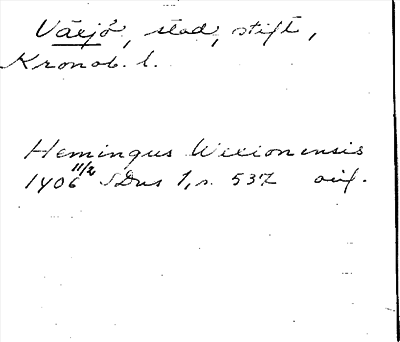 Växjö, stad, stift,
Kronob. l.
Hemingus Wexionensis
1406 11/2 SDns 1, s. 537 avs.